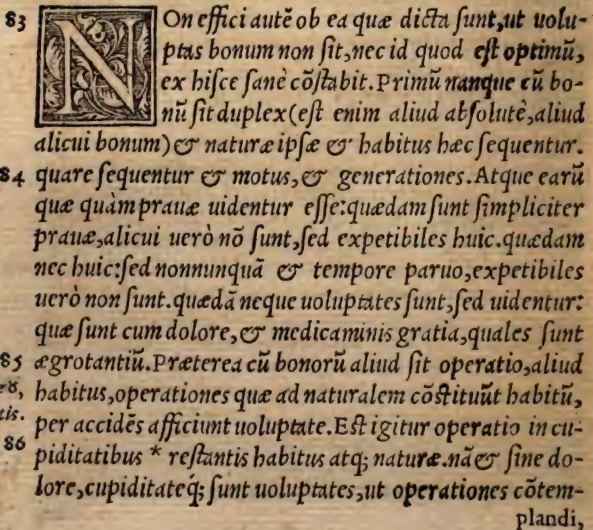 83 NOn effici autē ob ea quæ dicta sunt,ut uolu-
ptas bonum non sit,nec id quod est optimū,
ex hisce sanè cōstabit.Primū nanque cū bo-
nū sit duplex(est enim aliud absolutè,aliud
alicui bonum)& naturæ ipsæ & habitus hæc sequentur.
84 quare sequentur & motus,& generationes.Atque earū
quæ quàm prauæ uidentur esse:quædam sunt simpliciter
prauæ,alicui uerò nō sunt,sed expetibiles huic.quædam
nec huic:sed nonnunquā & tempore paruo,expetibiles
uerò non sunt.quædā neque uoluptates sunt,sed uidentur:
quæ sunt cum dolore,& medicaminis gratia,quales sunt
85 ægrotantiū.Præterea cū bonorū aliud sit operatio,aliud
habitus,operationes quæ ad naturalem cōstituūt habitū,
tis. per accidēs afficiunt uoluptate.Est igitur operatio in cu-
86 piditatibus * restantis habitus atq; naturæ.nā & sine do-
lore,cupiditateq́; sunt uoluptates,ut operationes cōtem-
plandi,